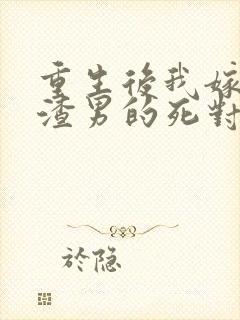 重生後我嫁
渣男的死對
於隐